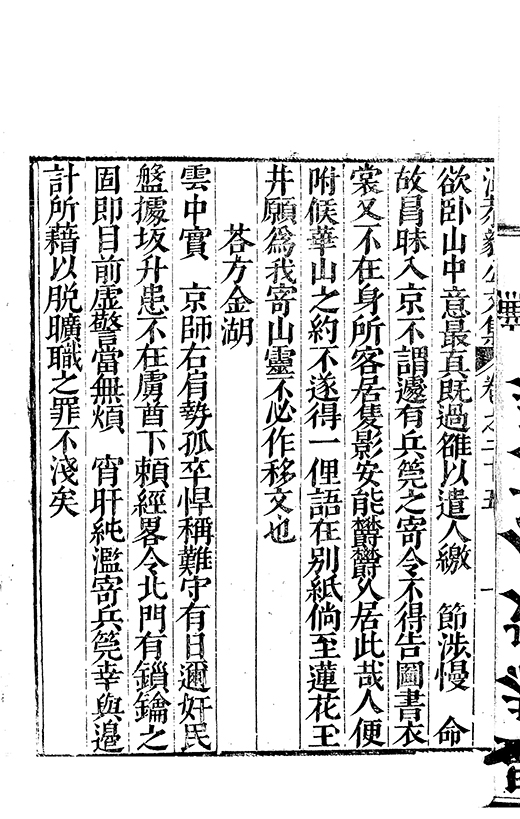 恭毅公文集 卷之二十五 一
欲卧山中意最真既過雒以遣人繳 節涉慢 命
故昌昧入京不謂遽有兵筦之寄令不得告圖書衣
裳又不在身所客居隻影安能欝欝久居此哉人便
咐候華山之約不遂得一俚語在别紙倘至蓮花玉
井願爲我寄山靈不必作移文也
荅方金湖
雲中實 京師右肩勢孤卒悍稱難守有日邇奸民
盤據坂升患不在虜酋下頼經畧令北門有鎻鑰之
固即目前虚警當無煩 宵旰純濫寄兵筦幸與邉
計所藉以脱曠職之罪不淺矣